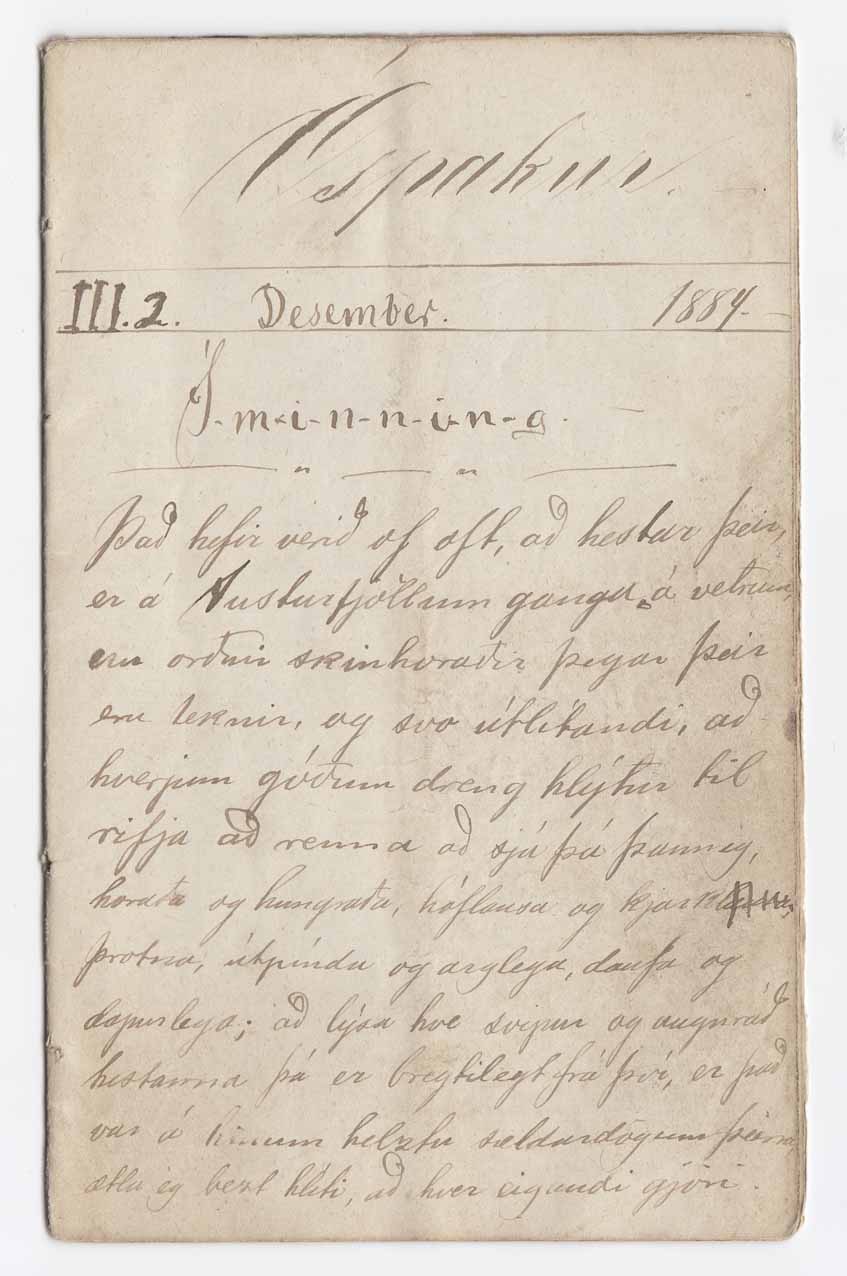 Ófspakur.
III. 2. Desember. 1884.
Á-m-i-n-n-i-n-g.
Það hefir verið of oft, að hestar þeir,
er á Austurfjöllum ganga á vetrum,
eru orðnir skinhoraðir þegar þeir
eru teknir, og svo útlítandi, að
hverjum góðum dreng hlýtur til
rifja að renna að sjá þá þannig,
horaða og hungraða, hóflausa og
þrotna, útpínda og arglega, daufa og
dapurlega; að lýsa hve svipur og augnráð
hestanna þá er bregtilegt frá því, er það
var á hinum helztu sældardögum þeirra,
ætla ég bezt hlíti, að hver eigandi gjöri.